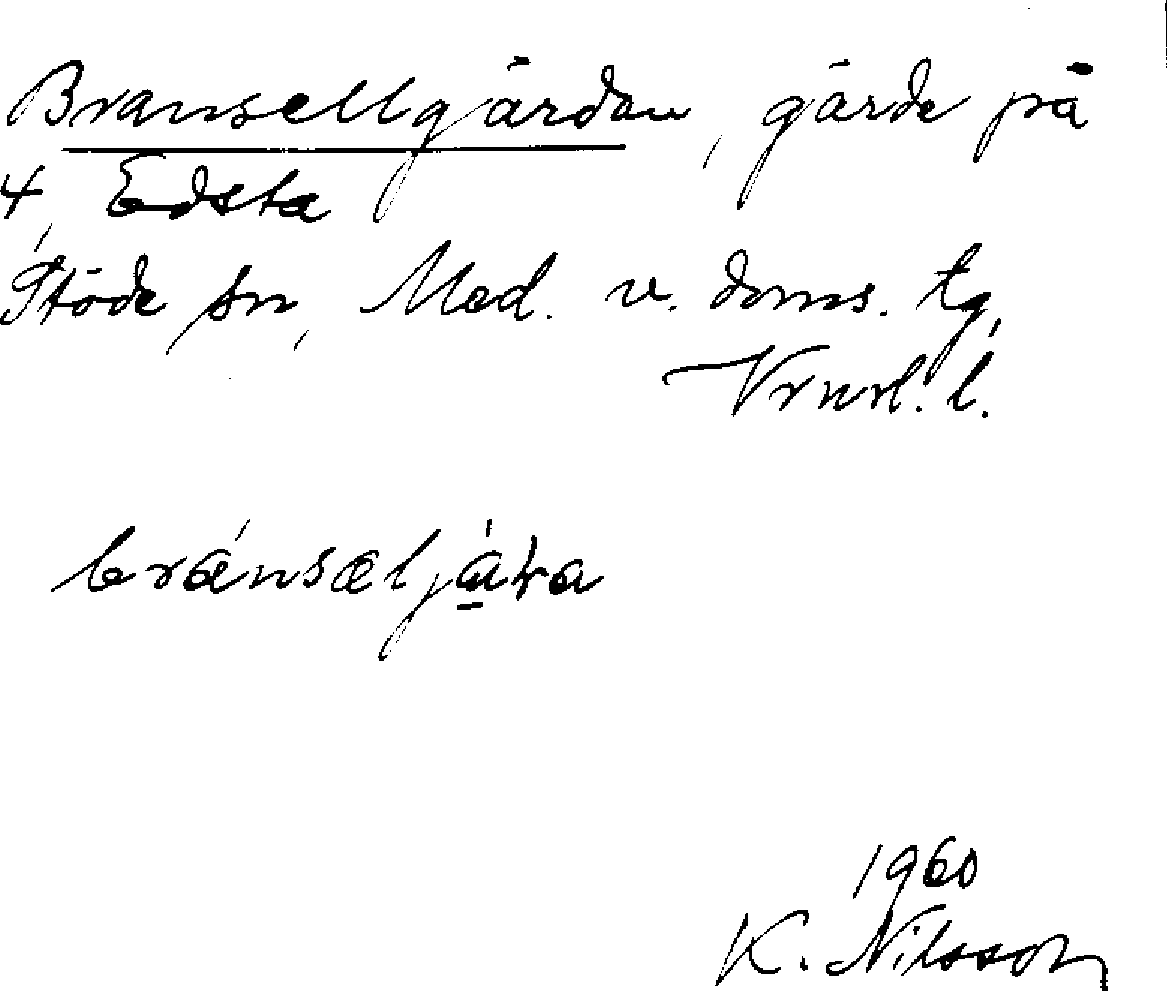 Bransellgärdan, gärde på
4, Edsta
Stöde sn, Med. v. doms. tg,
Vrnrl. l.
bránsæljáɽa
1960
K. Nilsson